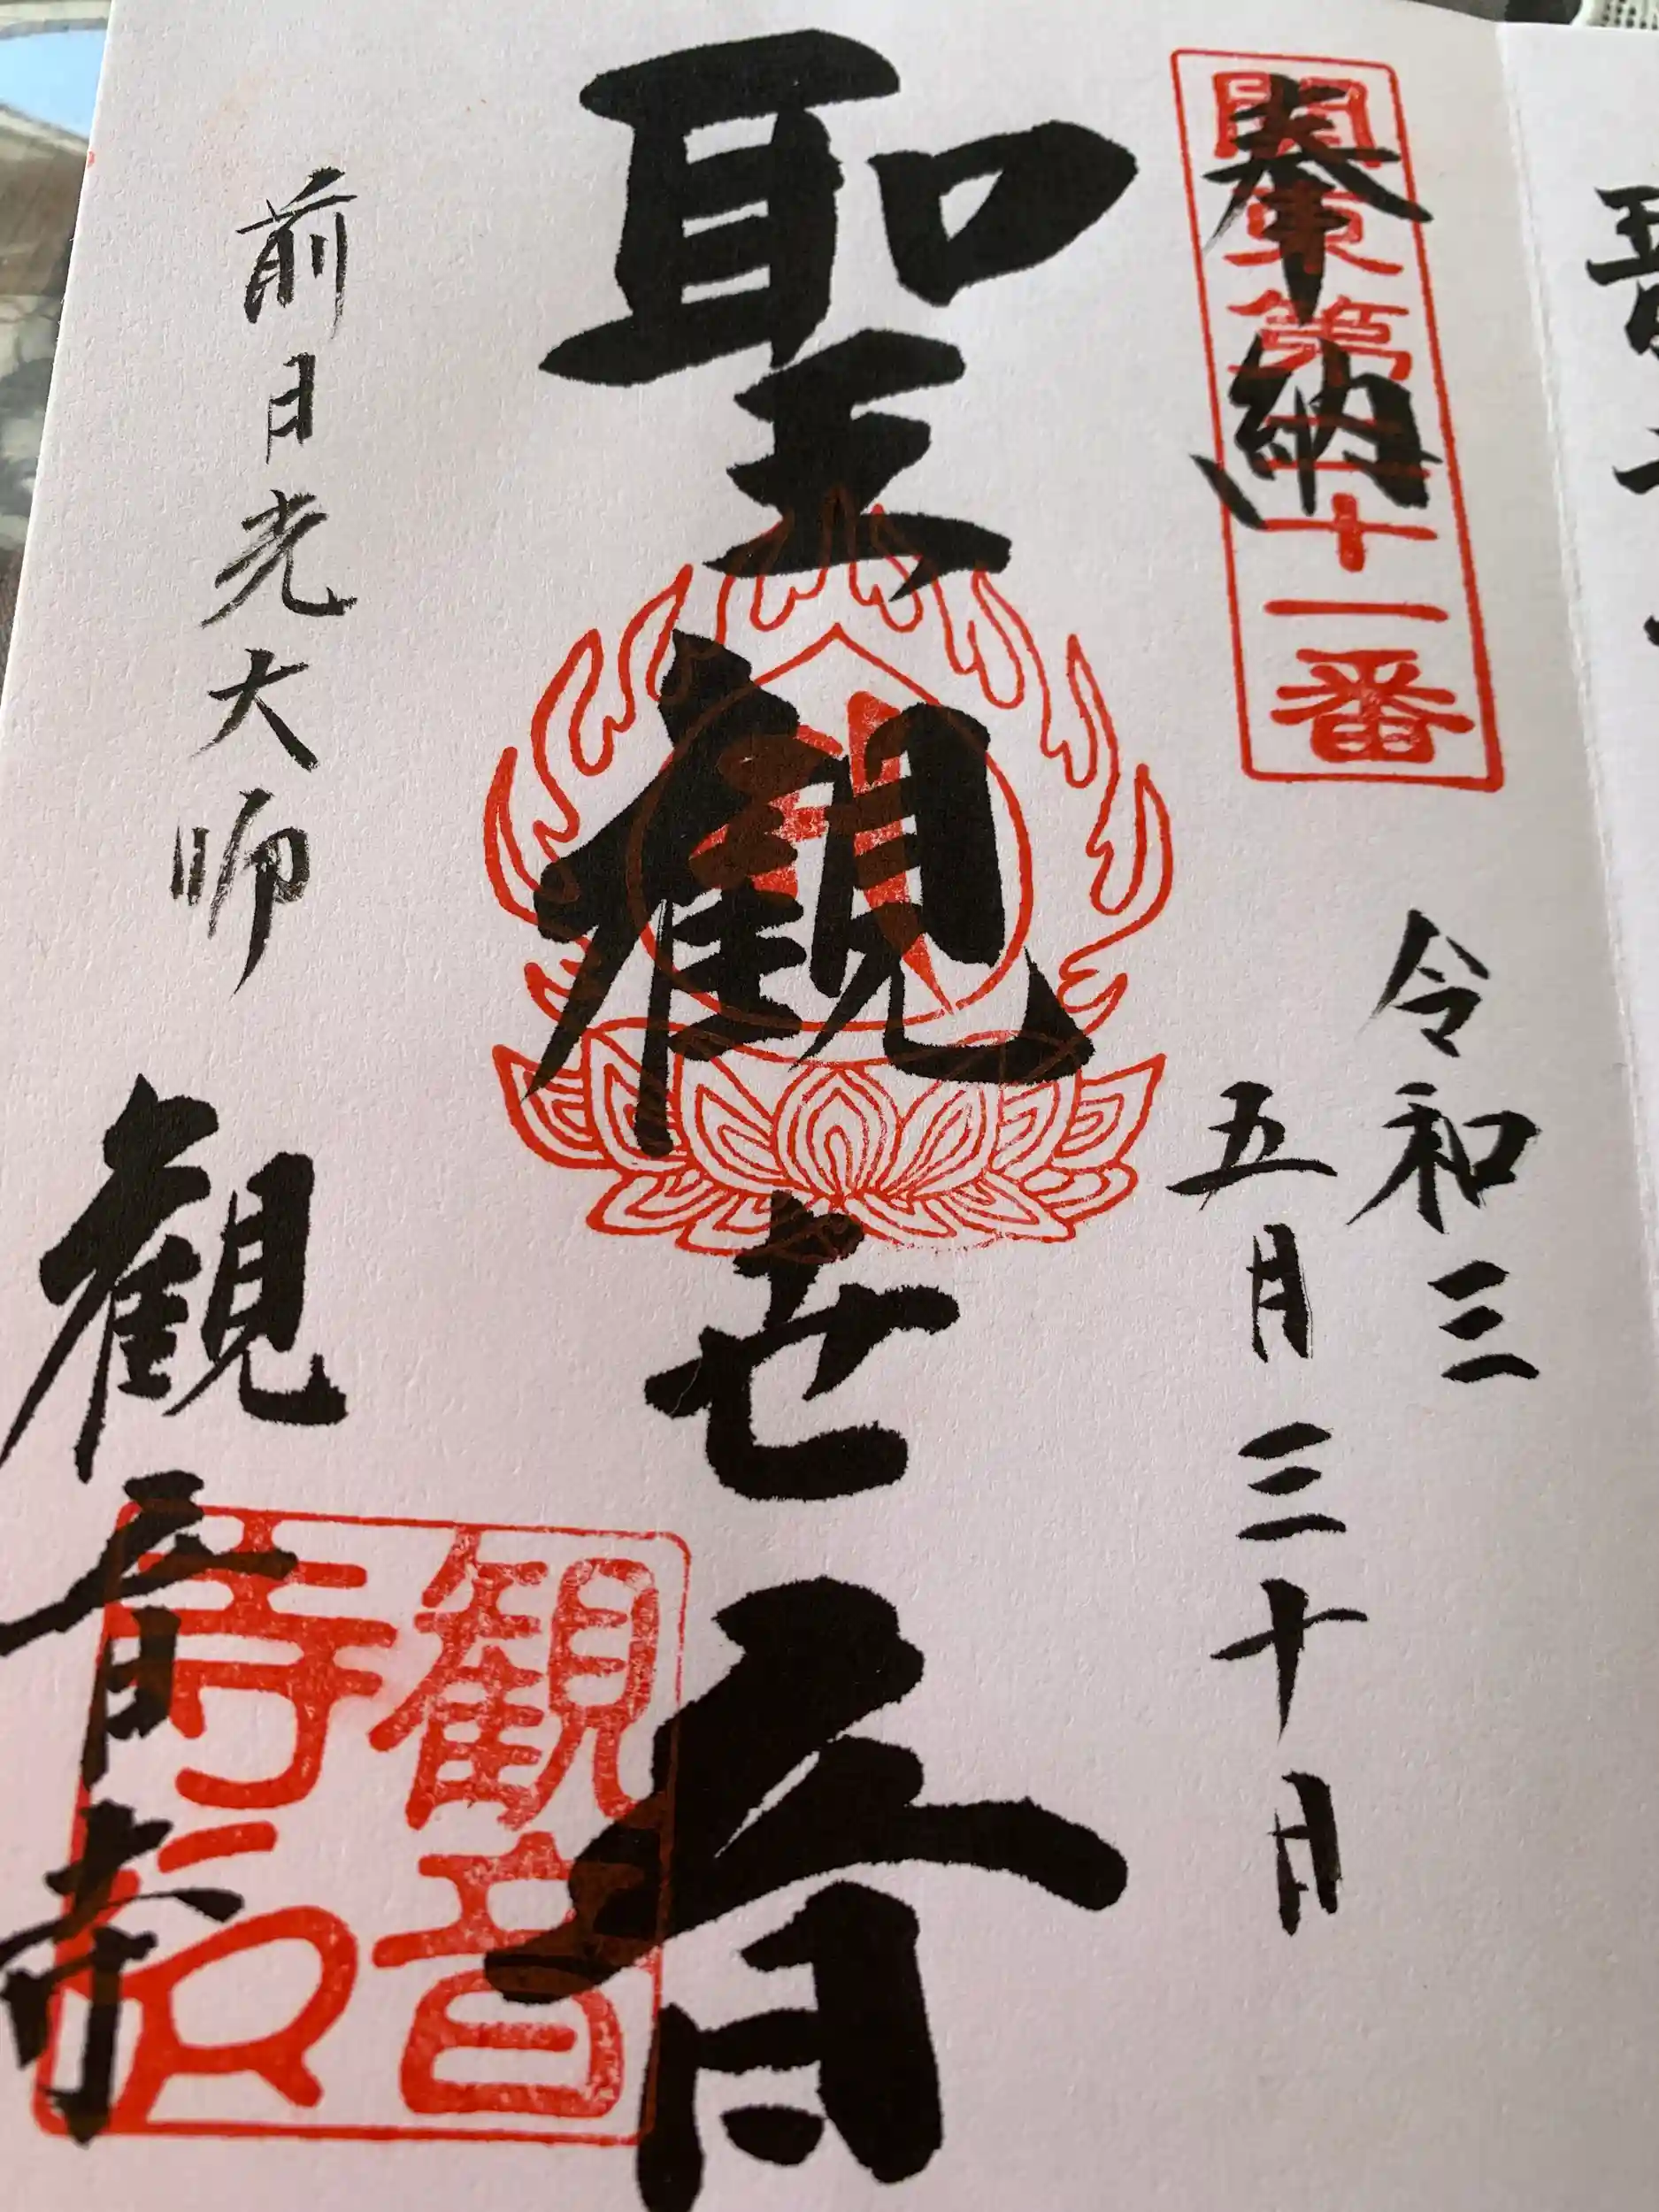 奉納
関東第
十一番
令和三
五月三十日
聖観世音
前日光大師
観音寺
観音
寺印